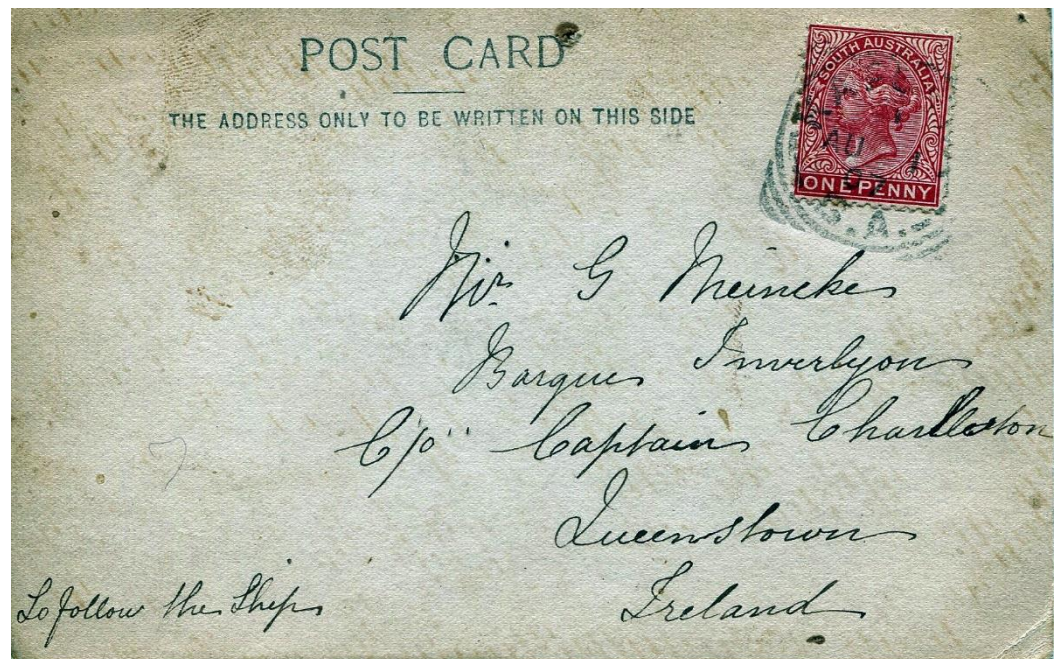 POST CARD
THE ADDRESS ONLY TO BE WRITTEN ON THIS SIDE
SOUTH AUSTRALIA
ONE PENNY
AU 1
S.A.
Mr. G Meineke
Barque Inverlyon
C/o" Captain Charleston
Queenstown
Ireland
To follow the Ship